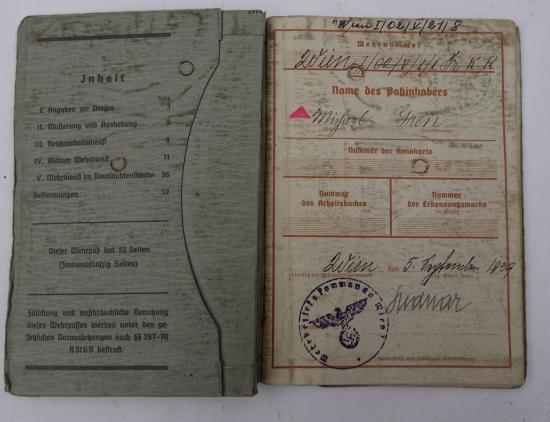 Inhalt
Seite
I. Angaben zur Person 3
II. Musterung und Aushebung 5
III. Reichsarbeitsdienst 8
IV. Aktiver Wehrdienst 11
V. Wehrdienst im Beurlaubtenstande 36
Bestimmungen 52
Dieser Wehrpaß hat 52 Seiten
(Zweiundfünfzig Seiten)
Fälschung und mißbräuchliche Benutzung
dieses Wehrpasses werden unter den ge-
setzlichen Voraussetzungen nach §§ 267-70
RStGB bestraft.
Wien I/02/X/21/8
Wehrnummer
Wien
Name des Paßinhabers
Nummer der Kennkarte
Nummer
des Arbeitsbuches
Nummer
der Erkennungsmarke
Wien, den 5. September 1939
Wehrbezirkskommando Wien I